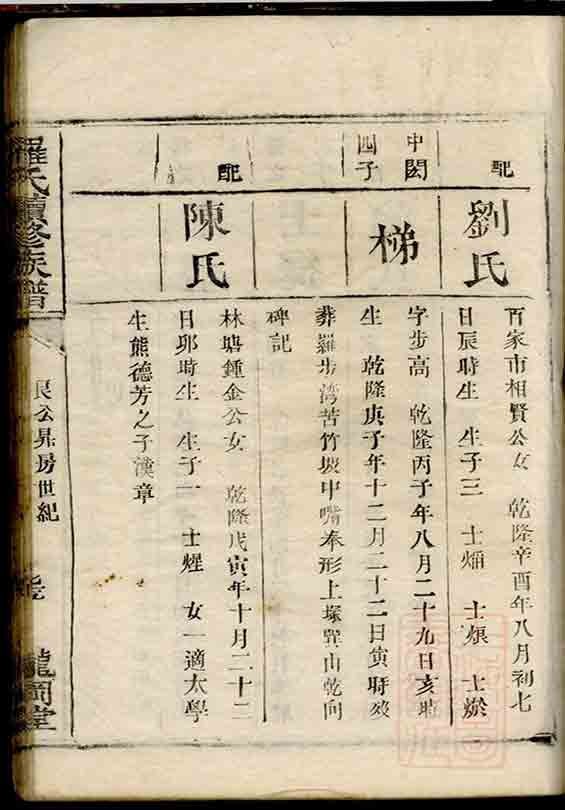 配
劉氏
百家市相賢公女 乾隆辛酉年八月初七
日辰時生 生子三 士煏 士烺 士
中閎
四子
梯
字步高 乾隆丙子年八月二十九日亥時
生 乾隆庚子年十二月二十二日寅時歿
葬羅步湾苦竹塅中嘴拳形上塚巽山乾向
碑記
配
陳氏
林塘鍾金公女 乾隆戊寅年十月二十二
日卯時生 生子一 士煋 女一適太學
生熊德芳之子漢章
羅氏續修族譜
良公昇房世紀
龍岡堂